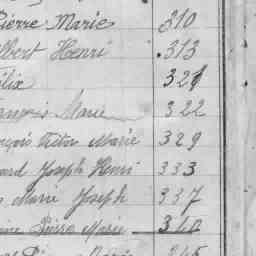 Pierre Marie 310
Albert Henri 313
Félix 321
François Marie 322
François Victor Marie 329
Joseph Henri 333
Marie Joseph 337
Pierre Marie 340
345